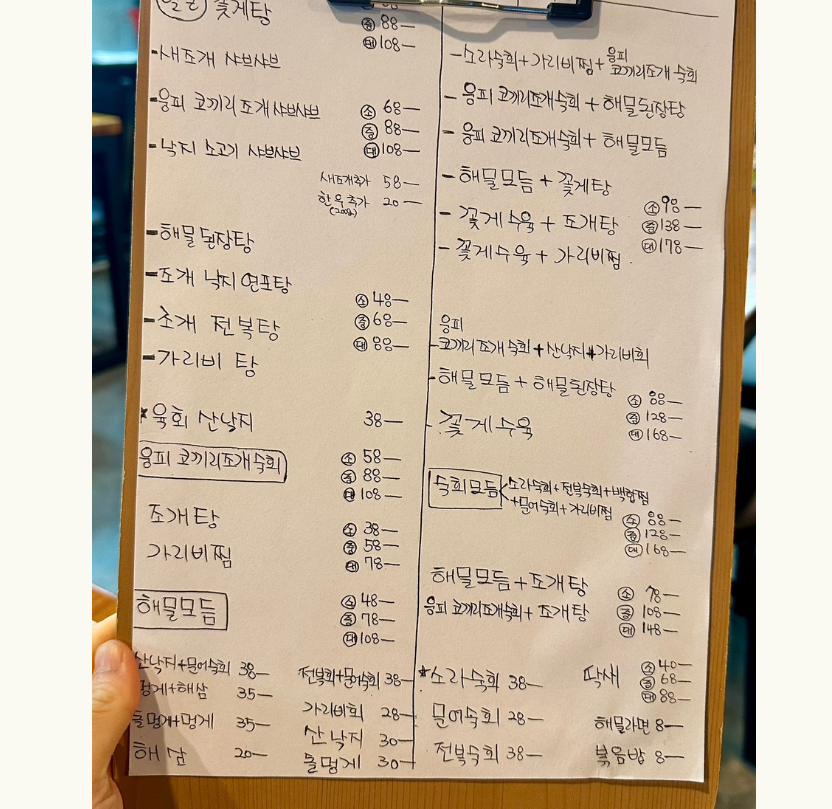 꽃게탕
㊥ 88—
㊅ 108—
-새조개 샤브샤브
-웅피 코끼리조개 샤브샤브
-낙지 소고기 샤브샤브
㊂ 68—
㊥ 88—
㊅ 108—
새조개추가 58—
한우추가 20—
(200g)
-해물된장탕
-조개 낙지 연포탕
-조개 전복탕
-가리비 탕
㊂ 48—
㊥ 68—
㊅ 88—
*육회 산낙지 38—
웅피 코끼리조개숙회
㊂ 58—
㊥ 88—
㊅ 108—
조개탕
가리비찜
㊂ 38—
㊥ 58—
㊅ 78—
해물모듬
㊂ 48—
㊥ 78—
㊅ 108—
산낙지+문어숙회 38—
멍게+해삼 35—
돌멍게+멍게 35—
해삼 20—
전복회+문어숙회 38—
가리비회 28—
산낙지 30—
돌멍게 30—
-소라숙회+가리비찜+웅피 코끼리조개 숙회
-웅피 코끼리조개숙회+해물된장탕
-웅피 코끼리조개숙회+해물모듬
-해물모듬+꽃게탕
-꽃게수육+조개탕
-꽃게수육+가리비찜
㊂ 98—
㊥ 138—
㊅ 178—
웅피
-코끼리조개숙회+산낙지+가리비회
-해물모듬+해물된장탕
-꽃게수육
㊂ 88—
㊥ 128—
㊅ 168—
숙회모듬<소라숙회+전복숙회+백합찜
+문어숙회+가리비찜
㊂ 88—
㊥ 128—
㊅ 168—
해물모듬+조개탕
웅피 코끼리조개숙회+조개탕
㊂ 78—
㊥ 108—
㊅ 148—
*소라숙회 38—
문어숙회 28—
전복숙회 38—
딱새
㊂ 40—
㊥ 68—
㊅ 88—
해물라면 8—
볶음밥 8—